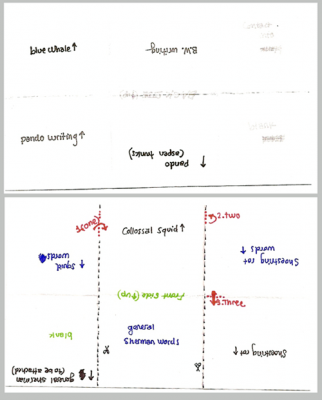 blue whale ↑
B.W. writing
pando writing ↑
pando ↑
(aspen trunks)
1(one)
Collossal squid ↑
2. two
squid ↑
words
Shoestring rot ↑
words
Front side (↑ up)
3. three
blank
general
sherman
words
general sherman ↑
(to be attached)
Shoestring rot ↑